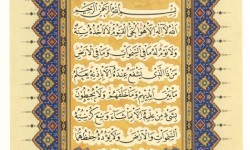 بِسْمِ اللهِ الرَّحْمٰنِ الرَّحِيمِ
اللهُ لَا إِلٰهَ إِلَّا هُوَ الْحَيُّ الْقَيُّومُ لَا تَأْخُذُهُ سِنَةٌ
وَلَا نَوْمٌ لَهُ مَا فِي السَّمٰوَاتِ وَمَا فِي الْأَرْضِ
مَنْ ذَا الَّذِي يَشْفَعُ عِنْدَهُ إِلَّا بِإِذْنِهِ يَعْلَمُ
مَا بَيْنَ أَيْدِيهِمْ وَمَا خَلْفَهُمْ وَلَا يُحِيطُونَ
بِشَيْءٍ مِنْ عِلْمِهِ إِلَّا بِمَا شَاءَ وَسِعَ كُرْسِيُّهُ
السَّمٰوَاتِ وَالْأَرْضَ وَلَا يَؤُدُهُ حِفْظُهُمَا